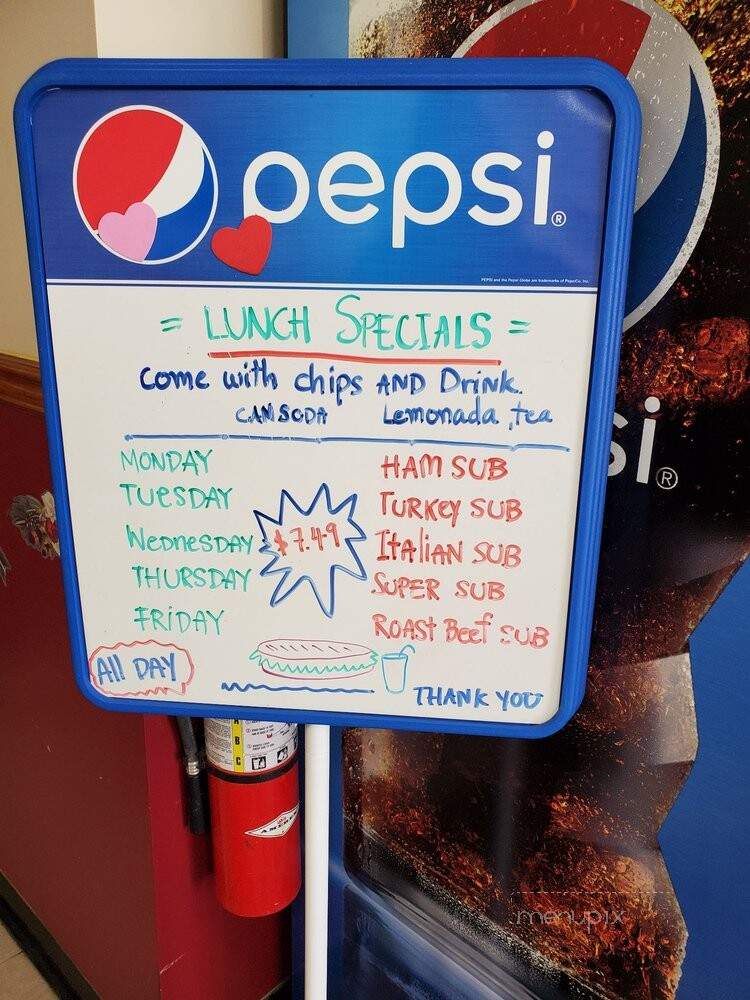 pepsi®
PEPSI and the Pepsi Globe are trademarks of PepsiCo, Inc.
= LUNCH SPECIALS =
come with chips AND Drink.
CAN SODA Lemonada, tea
MONDAY HAM SUB
TUESDAY TURKEY SUB
WEDNESDAY $7.49 ITALIAN SUB
THURSDAY SUPER SUB
FRIDAY ROAST Beef SUB
All DAY
THANK YOU
si®
A
B
C
menupix